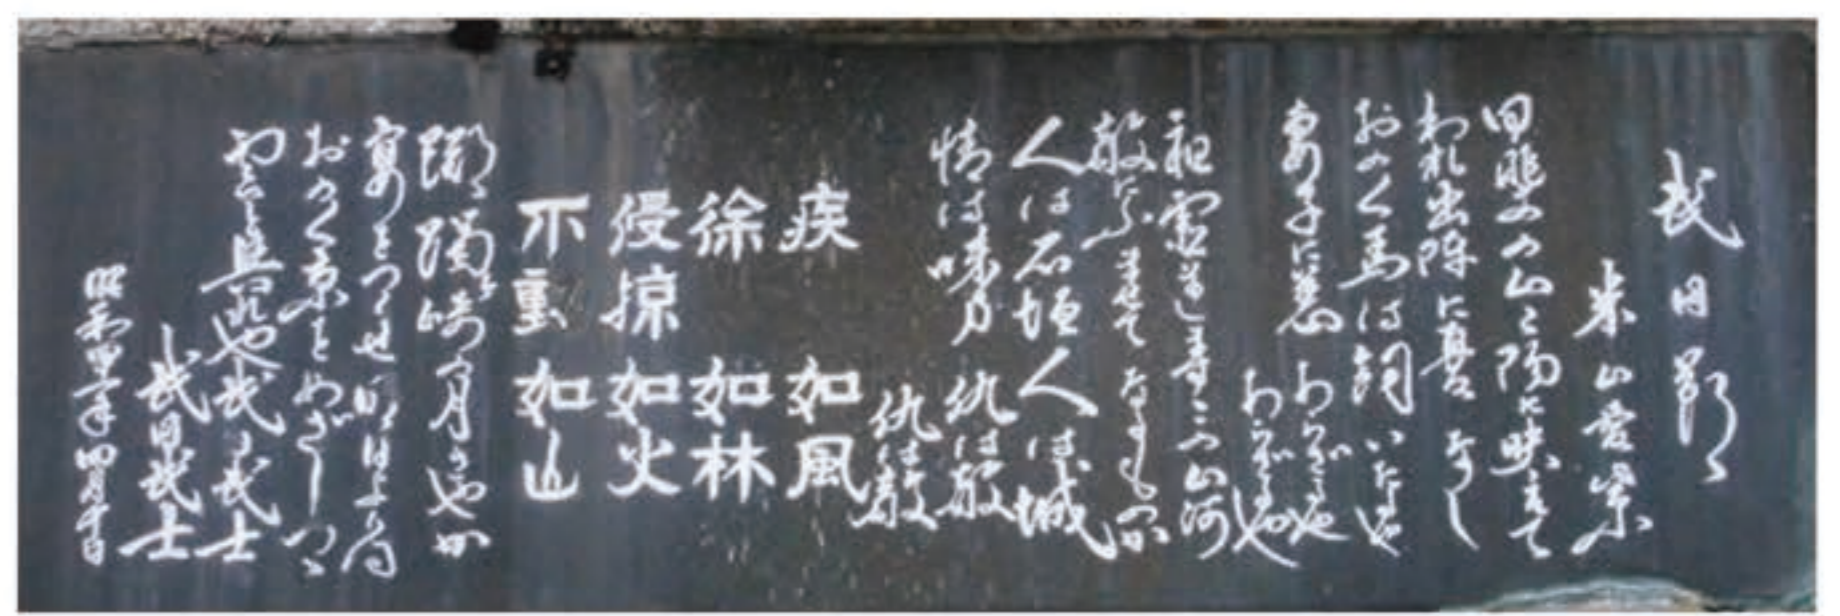 武田節
米山愛紫
甲斐の山々陽に映えて
われ出陣に憂なし
おのおの馬は飼いたるや
妻子に恙あらざるや
あらざるや
祖霊まします この山河
敵にふませてなるものか
人は石垣 人は城
情は味方 仇は敵
仇は敵
疾 如風
徐 如林
侵掠 如火
不動 如山
躑躅ヶ崎の月さやか
宴をつくせ明日よりは
おのおの京をめざしつつ
雲と興れや武田武士
武田武士
昭和 四月十日